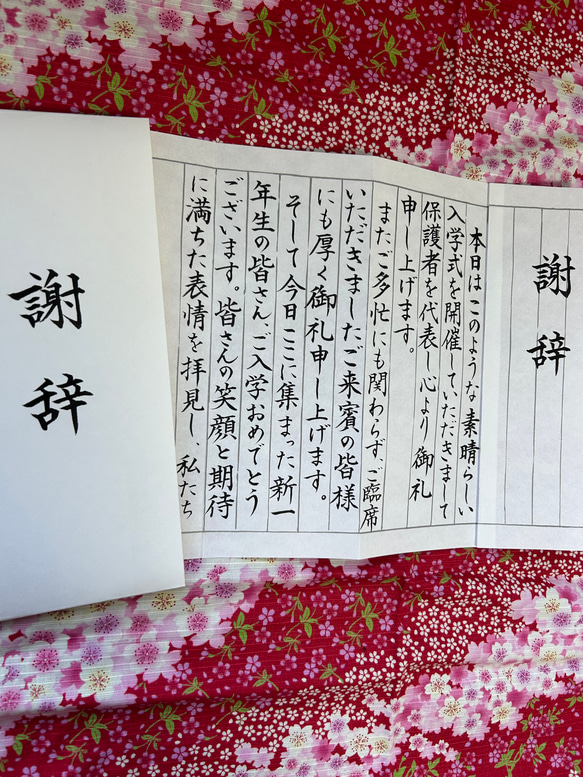 謝辞
本日はこのような素晴らしい
入学式を開催していただきまして
保護者を代表し心より御礼
申し上げます。
またご多忙にも関わらず、ご臨席
いただきましたご来賓の皆様
にも厚く御礼申し上げます。
そして今日ここに集まった新一
年生の皆さん、ご入学おめでとう
ございます。皆さんの笑顔と期待
に満ちた表情を拝見し、私たち
謝辞